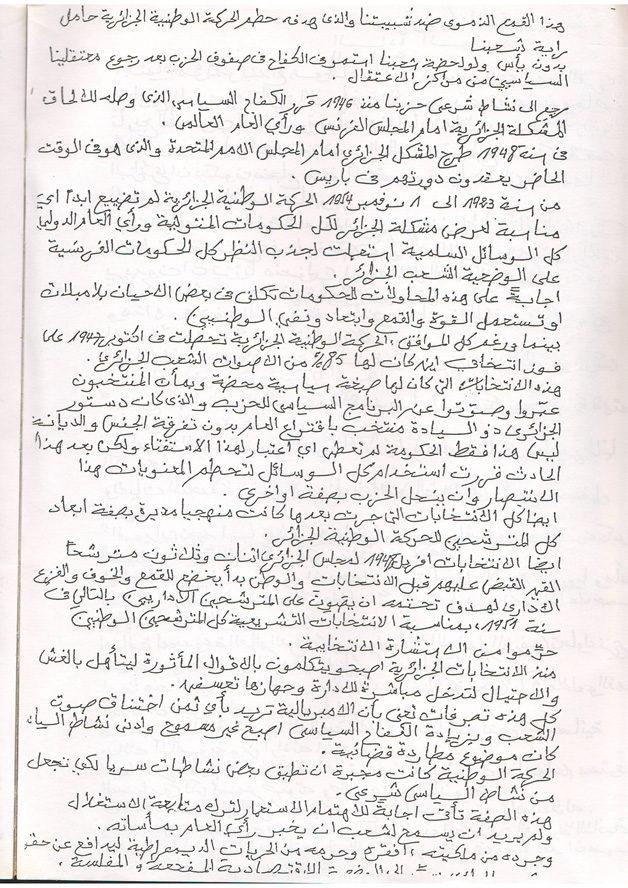 هذا القمع الدموي ضد شبيبتنا والذي هدفه حطم الحركة الوطنية الجزائرية حامل
راية شعبنا
بدون يأس ولو لحظة شعبنا استمر في الكفاح في صفوف الحزب بعد رجوع معتقلينا
السياسيين من مراكز الاعتقال
رجع إلى نشاط شرعي حزبنا منذ 1946 قرر الكفاح السياسي الذي وصله لالحاق
المشكلة الجزائرية امام المجلس الفرنسي ورأي العام العالمي .
في سنة 1948 طرح المشكل الجزائري امام المجلس الامم المتحدة والذي هو في الوقت
الحاضر يعقدون دورتهم في باريس .
من سنة 1923 الى 1 نوفمبر 1954 الحركة الوطنية الجزائرية لم تضييع ابدا اي
مناسبة لعرض مشكلة الجزائر لكل الحكومات المتولية ورأي العام الدولي
كل الوسائل السلمية استعملت لجذب النظر كل الحكومات الفرنسية
على الوضعية الشعب الجزائر
اجابة على هذه المحاولات للحكومات تكلل في بعض الاحيان بلامبلات
او تستعمل القوة والقمع وابتعاد ونفي الوطنيين .
بينما ورغم كل الموافق، الحركة الوطنية الجزائرية تحصلت في اكتوبر 1947 على
فوز انتخاب اين كان لها 85% من الاصوات الشعب الجزائري .
هذه الانتخابات التي كان لها صبغة سياسية محضة وبمأن المنتخبون
عبروا وصوتوا عن البرنامج السياسي للحزب والذي كان دستور
الجزائري ذو السيادة منتخب باقتراع العام بدون تفرقة الجنس والديانة
ليس هذا فقط. الحكومة لم تعطي اي اعتبار لهذا الاستفتاء ولكن بعد هذا
الحادث قررت استخدام كل الوسائل لتحطم المعنويات هذا
الانتصار وان ينحل الحزب بصفة او اخرى .
ايضا كل الانتخابات التي جرت بعدها كانت منهجيا مديرة بصفة ابعاد
كل المترشحي للحركة الوطنية الجزائر .
ايضا الانتخابات افريل 1948 لمجلس الجزائري اثنان وثلاثون مترشحا
القي القبض عليهم قبل الانتخابات والوطن بدأ يخضع للقمع والخوف والفزع
الاداري لهدف تحتمه ان يصوت على المترشحين الاداريين بالتالي في
سنة 1951 بمناسبة الانتخابات التشريعية كل المترشحين الوطنيين
حرموا من الاستشارة الانتخابية .
منذ الانتخابات الجزائرية اصبح يتكلمون بالاقوال المأثورة ليتأهل بالغش
والاحتيال لتدخل مباشرة الادارة وجهازها تعسفيا .
كل هذه تصرفات تعني بأن الامبريالية تريد بأي ثمن اختناق صوت
الشعب وبزيادة الكفاح السياسي اصبح غير مسموح وادنى نشاط السيا
كان موضوع مطاردة قضائية .
الحركة الوطنية كانت مجبرة ان تطبق بعض نشاطات سريا لكي تجعل
من نشاط السياسي شرعي .
هذه الصفة تأتي اجابة للاهتمام الاستعمار لترك متابعة الاستغلال
ولم يريد ان يسمح لشعب ان يخبر رأي العام بمأساته .
وجرده من ملكيته، افقره وحرمه من الحريات الديمقراطية ليدافع عن حقو
الوضعية الاقتصادية المفجعة والمفلسة .